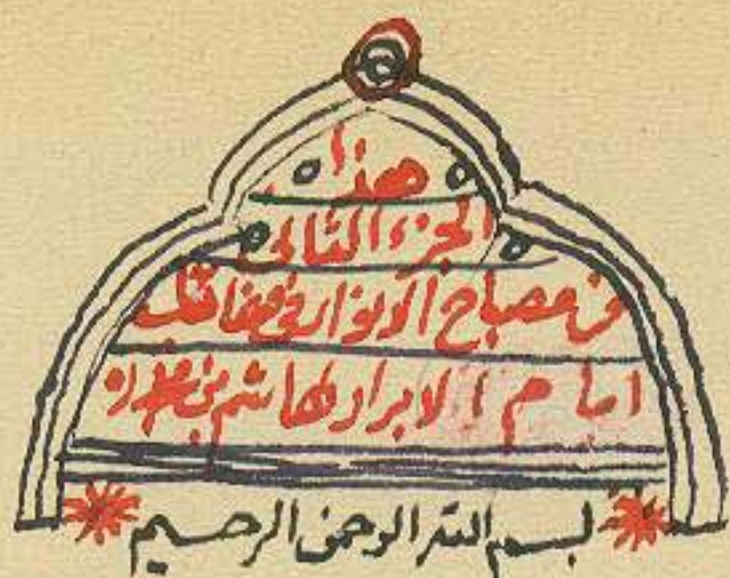 هذا
الجزء الثاني
من مصباح الانوار في مناقب
امام الابرار لهاشم بن محمد
بسم الله الرحمن الرحيم